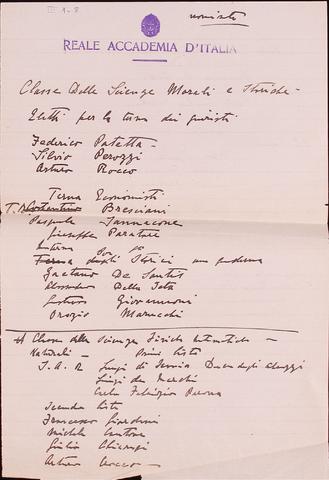 III 1-8
REALE ACCADEMIA D'ITALIA
Classe delle Scienze Morali e Storiche -
Eletti per la terna dei giuristi
Federico Patetta -
Silvio Perozzi
Arturo Rocco
Terna Economisti
Costantino Bresciani
Pasquale Jannaccone
Giuseppe Paratore
Terna degli Storici una
Gaetano De Sanctis
Alessandro Della Seta
Giovannoni
Orazio Marucchi
Classe delle Scienze Fisiche Matematiche -
Naturali - Prima lista
S. A. R. Luigi di Savoia Duca degli Abruzzi
Luigi de Marchi
Carlo Fabrizio Parona
Seconda lista
Francesco Giordani
Michele Cantone
Giulio
Arturo